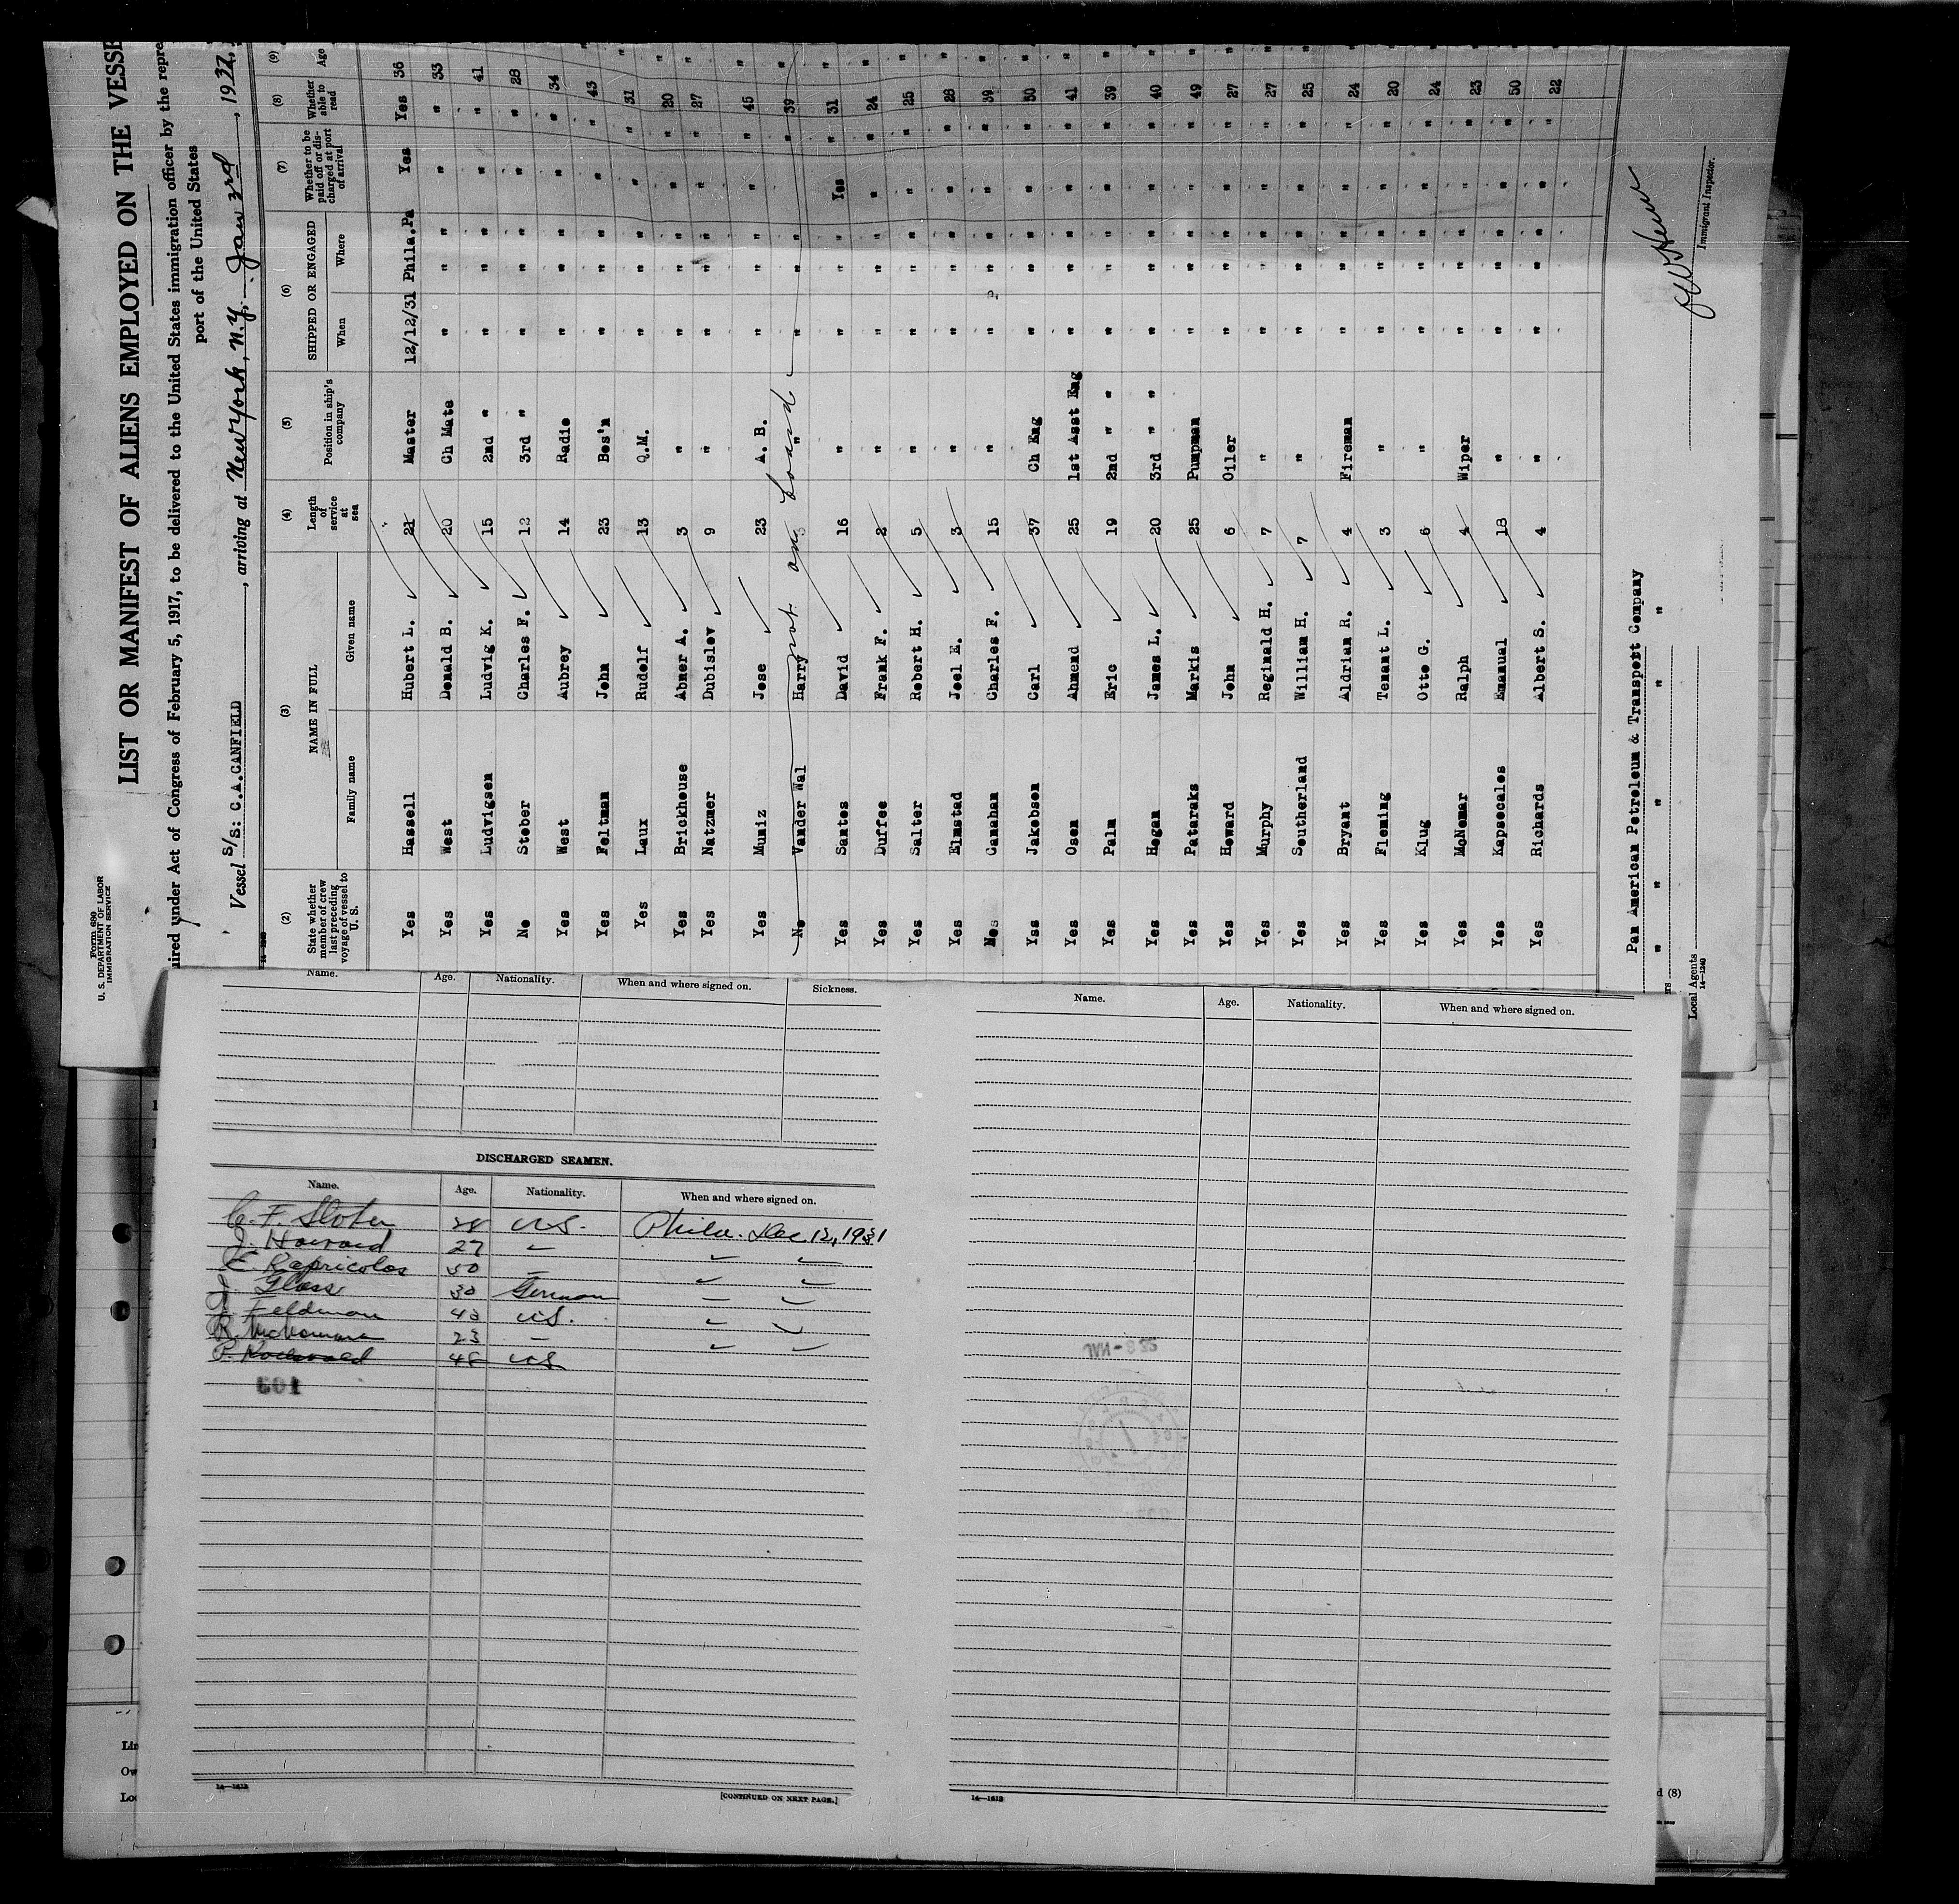 Form 680
U. S. DEPARTMENT OF LABOR
IMMIGRATION SERVICE
LIST OR MANIFEST OF ALIENS EMPLOYED ON THE VESSE
uired under Act of Congress of February 5, 1917, to be delivered to the United States immigration officer by the repre
port of the United States
Vessel S/S: C.A.CANFIELD, arriving at New York, N.Y., Jan 3rd, 1932,
(2) (3) (4) (5) (6) (7) (8) (9)
State whether member of crew last preceding voyage of vessel to U. S. NAME IN FULL Family name Given name Length of service at sea Position in ship's company SHIPPED OR ENGAGED When Where Whether to be paid off or discharged at port of arrival Whether able to read Age
Yes Hassell Hubert L. 21 Master 12/12/31 Phila.Pa Yes Yes 36
Yes West Donald B. 20 Ch Mate " " " " " 33
Yes Ludvigsen Ludvig K. 15 2nd " " " " " " 41
No Stober Charles F. 12 3rd " " " " " " 28
Yes West Aubrey 14 Radio " " " " " 34
Yes Feltman John 23 Bos'n " " " " " 43
Yes Laux Rudolf 13 Q.M. " " " " " 31
Yes Brickhouse Abner A. 3 " " " " " " 20
Yes Natzmer Dubislov 9 " " " " " " 27
Yes Muniz Jose 23 A. B. " " " " " 45
No Vander Wal Harry not on board " " " " 39
Yes Santos David 16 " " " " Yes " 31
Yes Duffee Frank F. 2 " " " " " " 24
Yes Salter Robert H. 5 " " " " " " 25
Yes Elmstad Joel E. 3 " " " " " " 28
Canahan Charles F. 15 " " " " " " 39
Yes Jakobsen Carl 37 Ch Eng " " " " " 50
Yes Osen Ahmend 25 1st Asst Eng " " " " " 41
Yes Palm Eric 19 2nd " " " " " " " 39
Yes Hogan James L. 20 3rd " " " " " " " 40
Yes Pataraks Markis 25 Pumpman " " " " " 49
Yes Howard John 6 Oiler " " " " " 27
Yes Murphy Reginald H. 7 " " " " " " 27
Yes Southerland William H. 7 " " " " " " 25
Yes Bryant Aldrian R. 4 Fireman " " " " " 24
Yes Fleming Tenant L. 3 " " " " " " 20
Yes Klug Otto G. 6 " " " " " " 24
Yes McNemar Ralph 4 Wiper " " " " " 23
Yes Kapsocales Emanual 18 " " " " " " 50
Yes Richards Albert S. 4 " " " " " " 22
Pan American Petroleum & Transport Company
" " " " "
Local Agents
14—1240
Immigrant Inspector.
Name. Age. Nationality. When and where signed on. Sickness.
DISCHARGED SEAMEN.
Name. Age. Nationality. When and where signed on.
C. F. Stober 28 U.S. Phila. Dec 12, 1931
J. Howard 27
E. Kapricolos 50
J. Glass 30 German
J. Feldman 43 U.S.
R. McNemar 23
P. 48 U.S.
14—1613
[CONTINUED ON NEXT PAGE.]
Name. Age. Nationality. When and where signed on.
14—1613
d (8)